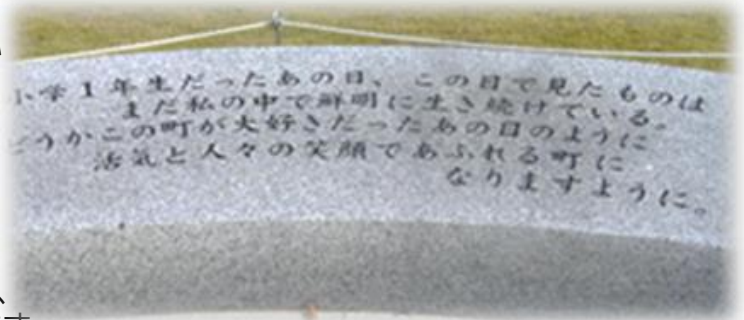 小学1年生だったあの日、この目で見たものは
まだ私の中で鮮明に生き続けている。
どうかこの町が大好きだったあの日のように
活気と人々の笑顔であふれる町に
なりますように。